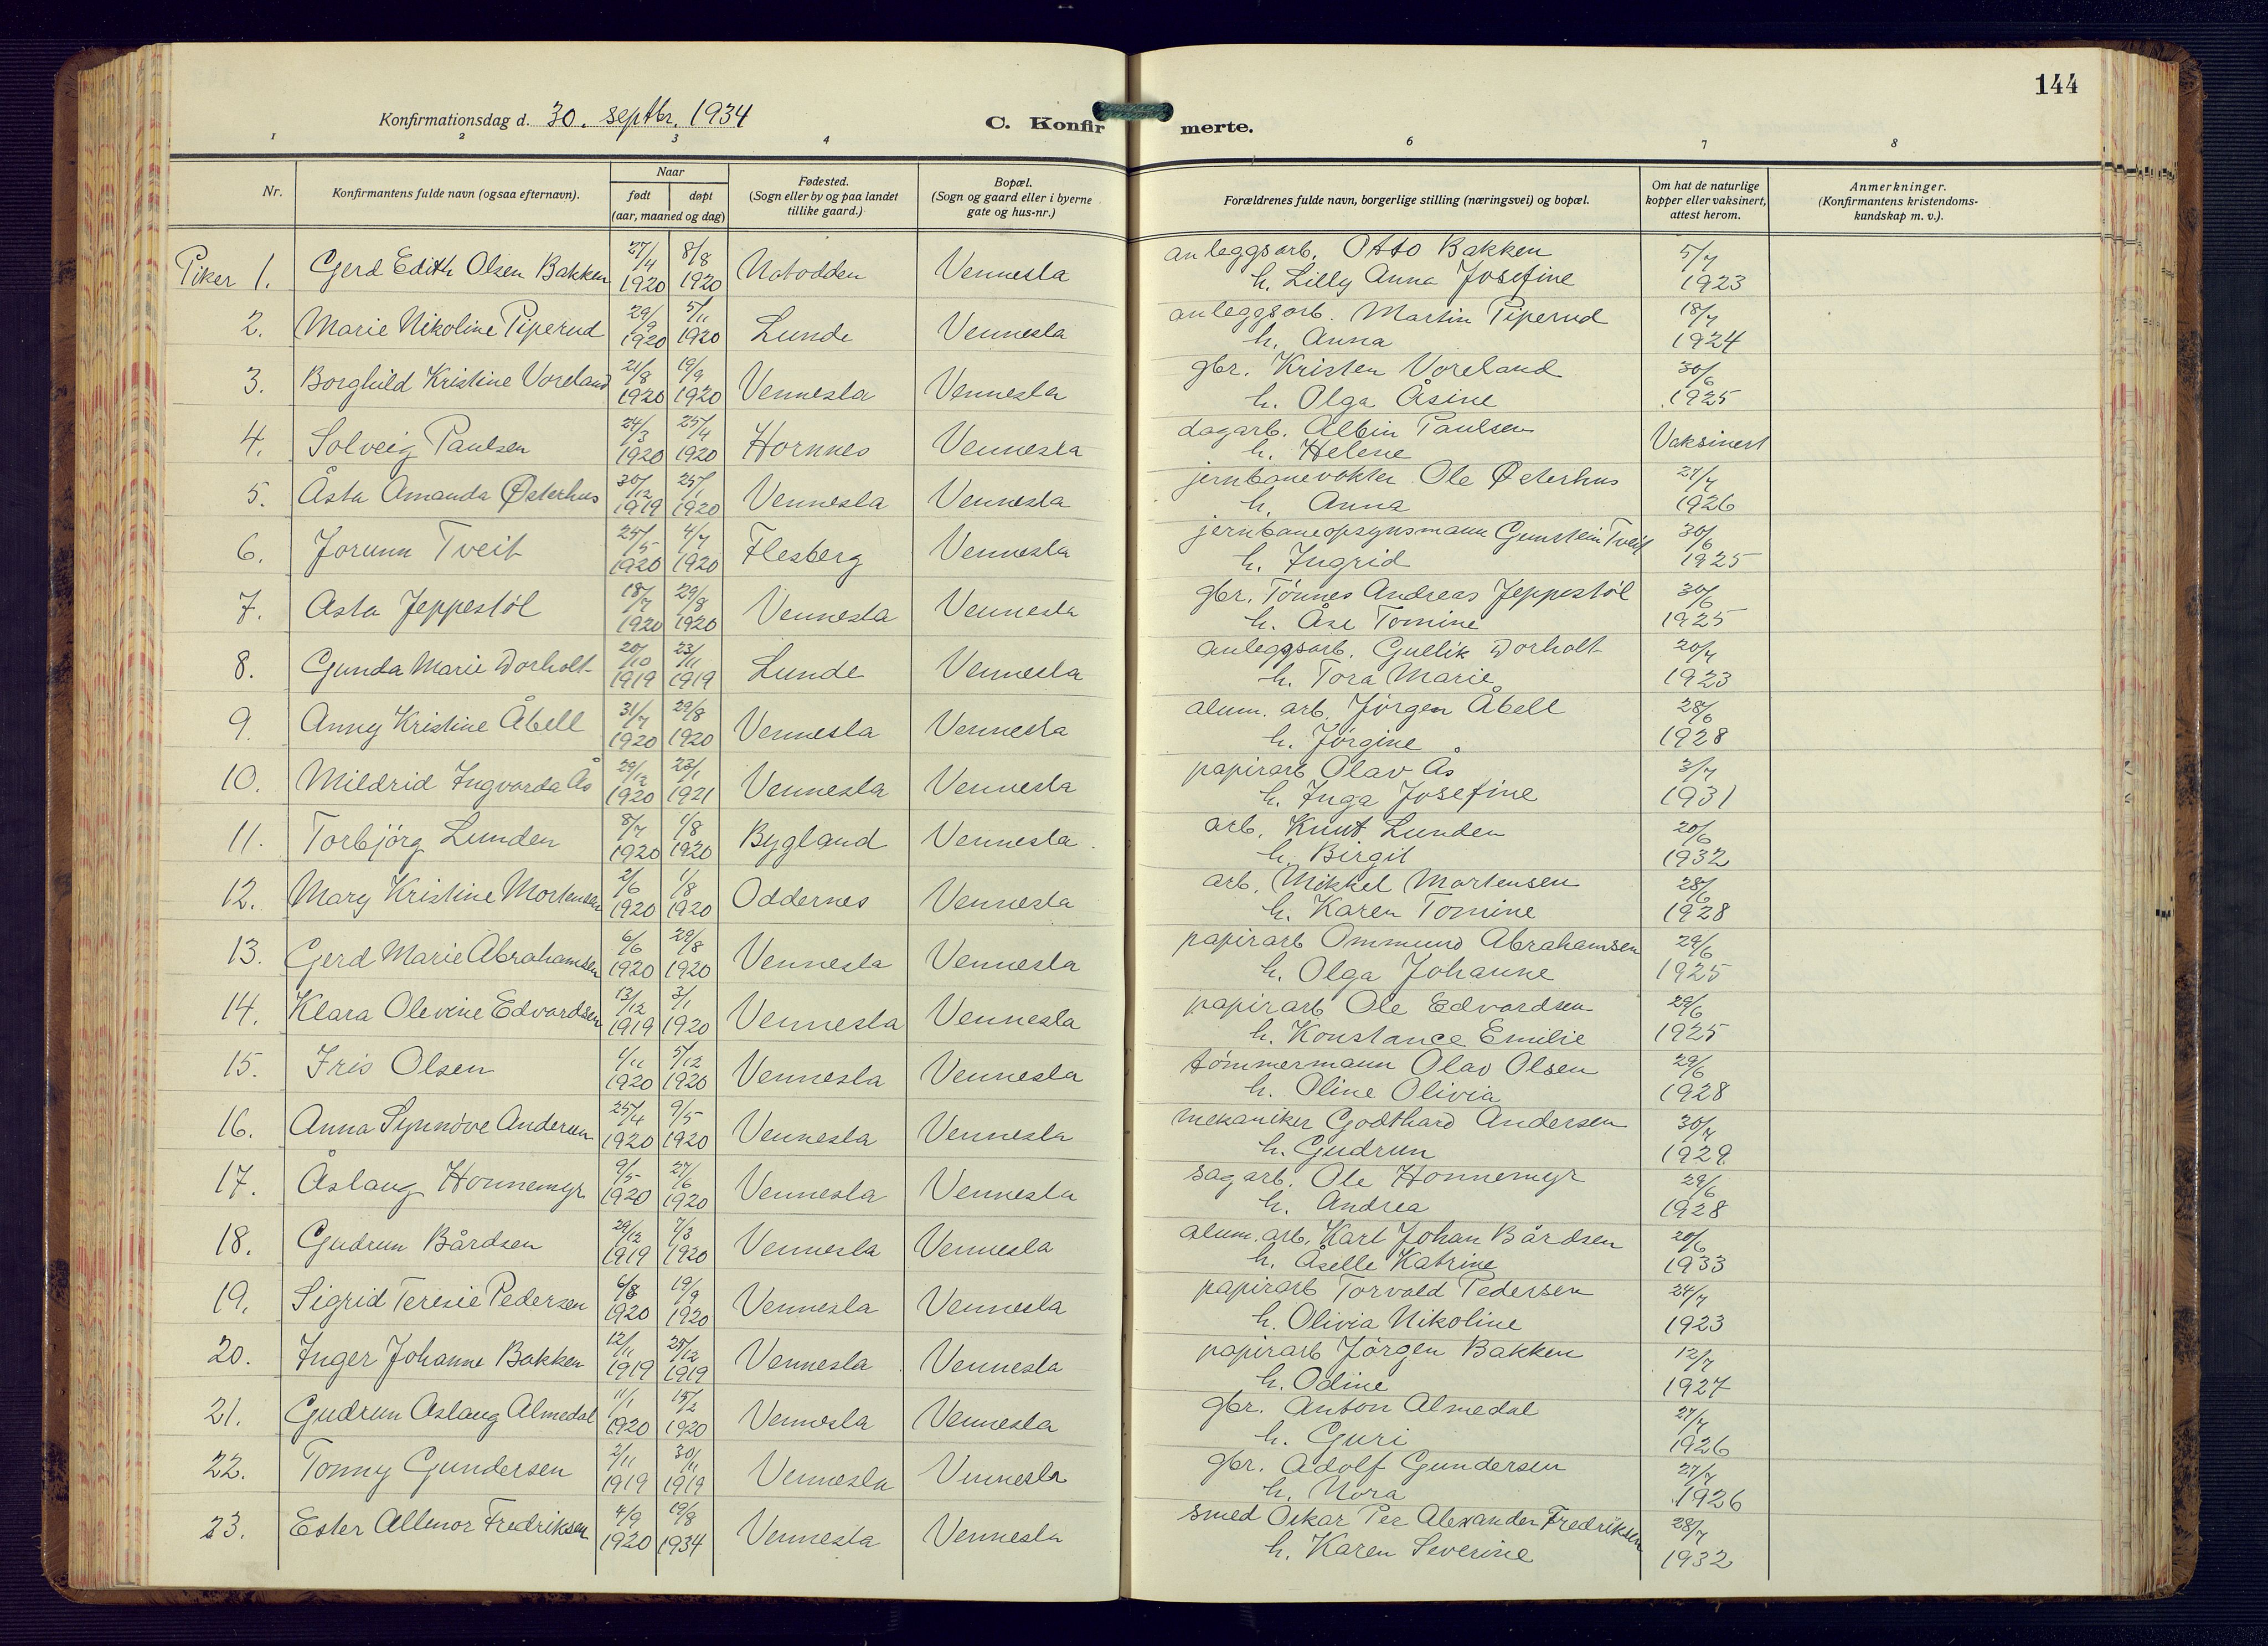 144
Konfirmationsdag d. 30. septbr. 1934
C. Konfirmerte.
1 2 3 4 6 7 8
Nr. | Konfirmantens fulde navn (ogsaa efternavn). | Naar født | døpt (aar, maaned og dag) | Fødested. (Sogn eller by og paa landet tillike gaard.) | Bopæl. (Sogn og gaard eller i byerne gate og hus-nr.) | Forældrenes fulde navn, borgerlige stilling (næringsvei) og bopæl. | Om hat de naturlige kopper eller vaksinert, attest herom. | Anmerkninger. (Konfirmantens kristendomskundskap m. v.).
Piker 1. Gerd Edith Olsen Bakken 27/4 1920 8/8 1920 Notodden Vennesla anleggsarb. Otto Bakken h. Lilly Anna Josefine 5/7 1923
2. Marie Nikoline Piperud 29/9 1920 5/11 1920 Lunde Vennesla anleggsarb. Martin Piperud h. Anna 18/7 1924
3. Borghild Kristine Voreland 21/8 1920 19/9 1920 Vennesla Vennesla gbr. Kristen Voreland h. Olga Åsine 30/6 1925
4. Solveig Paulsen 24/3 1920 25/4 1920 Hornnes Vennesla dagarb. Albin Paulsen h. Helene Vaksinert
5. Åsta Amanda Østerhus 30/12 1919 25/1 1920 Vennesla Vennesla jernbanevokter Ole Østerhus h. Anna 27/7 1926
6. Jorunn Tveit 25/5 1920 4/7 1920 Flesberg Vennesla jernbaneopsynsmann Gunstein Tveit h. Ingrid 30/6 1925
7. Asta Jeppestøl 18/7 1920 29/8 1920 Vennesla Vennesla gbr. Tønnes Andreas Jeppestøl h. Åse Tomine 30/6 1925
8. Gunda Marie Dorholt 20/10 1919 23/11 1919 Lunde Vennesla anleggsarb. Gullik Dorholt h. Tora Marie 20/7 1923
9. Anny Kristine Åbell 31/7 1920 29/8 1920 Vennesla Vennesla alum. arb. Jørgen Åbell h. Jørgine 28/6 1928
10. Mildrid Ingvarda Ås 29/12 1920 23/1 1921 Vennesla Vennesla papirarb Olav Ås h. Inga Josefine 3/7 1931
11. Torbjørg Lunden 8/7 1920 1/8 1920 Bygland Vennesla. arb. Knut Lunden h. Birgit 20/6 1932
12. Mary Kristine Mortensen 2/6 1920 1/8 1920 Oddernes Vennesla arb. Mikkel Mortensen h. Karen Tomine 28/6 1928
13. Gerd Marie Abrahamsen 6/6 1920 29/8 1920 Vennesla Vennesla papirarb Ommund Abrahamsen h. Olga Johanne 29/6 1925
14. Klara Olevine Edvardsen 13/12 1919 3/1 1920 Vennesla Vennesla papirarb Ole Edvardsen h. Konstance Emilie 29/6 1925
15. Iris Olsen 1/11 1920 5/12 1920 Vennesla Vennesla tømmermann Olav Olsen h. Oline Olivia 29/6 1928
16. Anna Synnøve Andersen 25/4 1920 9/5 1920 Vennesla Vennesla mekaniker Godthard Andersen h. Gudrun 30/7 1929
17. Åslaug Honnemyr 9/5 1920 27/6 1920 Vennesla Vennesla sagarb. Ole Honnemyr h. Andrea 29/6 1928
18. Gudrun Bårdsen 29/12 1919 7/3 1920 Vennesla Vennesla alum. arb. Karl Johan Bårdsen h. Åselle Katrine 20/6 1933
19. Sigrid Teresie Pedersen 6/8 1920 19/9 1920 Vennesla Vennesla papirarb Torvald Pedersen h. Olivia Nikoline 24/7 1923
20. Inger Johanne Bakken 12/11 1919 25/12 1919 Vennesla Vennesla papirarb Jørgen Bakken h. Odine 12/7 1927
21. Gudrun Aslaug Almedal 11/1 1920 15/2 1920 Vennesla Vennesla gbr. Anton Almedal h. Guri 27/7 1926
22. Tonny Gundersen 2/11 1919 30/11 1919 Vennesla Vennesla gbr. Adolf Gundersen h. Nora 27/7 1926
23. Ester Allenor Fredriksen 4/9 1920 19/8 1934 Vennesla Vennesla smed Oskar Per Alexander Fredriksen h. Karen Severine 28/7 1932